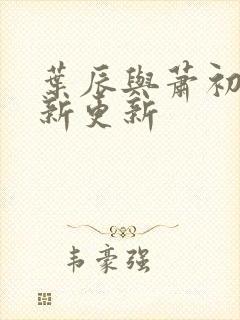 葉辰與蕭初
新更新
韦豪强